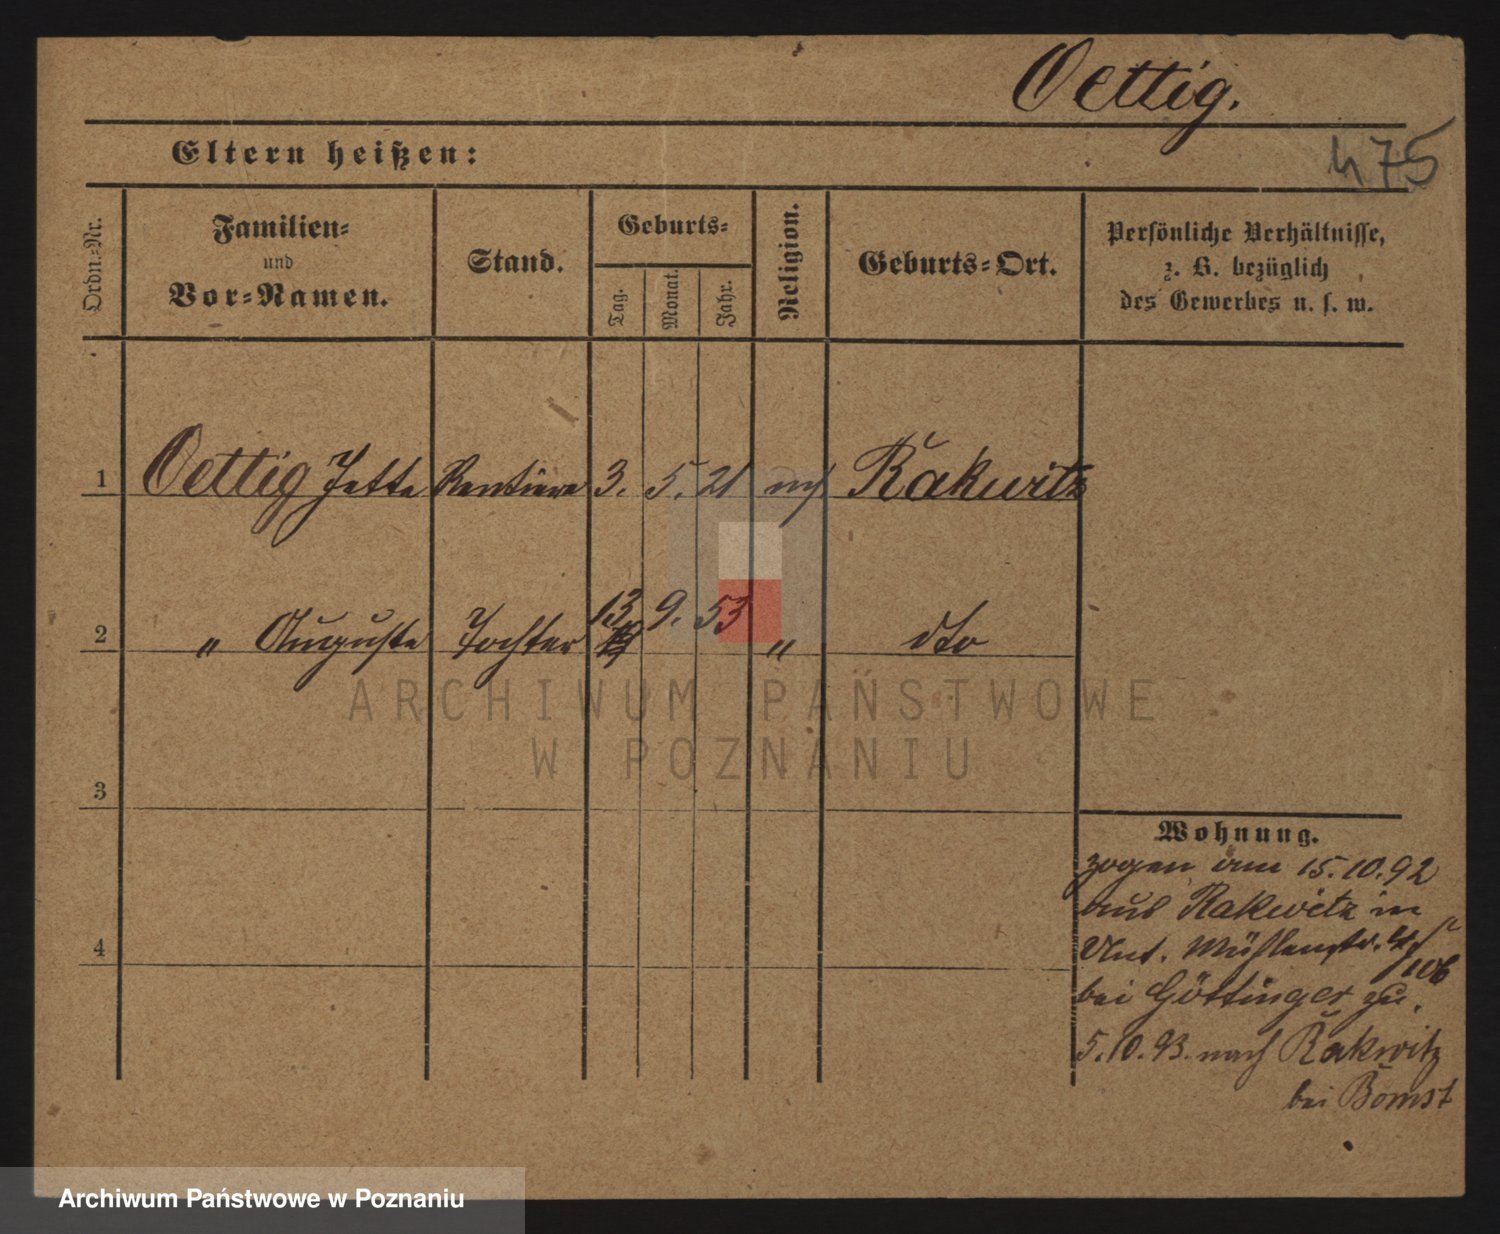 Oettig.
Eltern heißen:
475
Ordn.-Nr.
Familien-
und
Vor-Namen.
Stand.
Geburts-
Tag.
Monat.
Jahr.
Religion.
Geburts-Ort.
Persönliche Verhältnisse,
z. B. bezüglich
des Gewerbes u. s. w.
1 Oettig Jette Rentiere 3. 5. 21 Rakwitz
2 " Auguste Tochter 13. 9. 53 " dto
ARCHIWUM PAŃSTWOWE
W POZNANIU
3
4
Wohnung.
zogen am 15.10.92
aus Rakwitz in
Unt. Mühlenstr.
bei Göttinger zu.
5.10.93. nach Rakwitz
bei Bomst
Archiwum Państwowe w Poznaniu